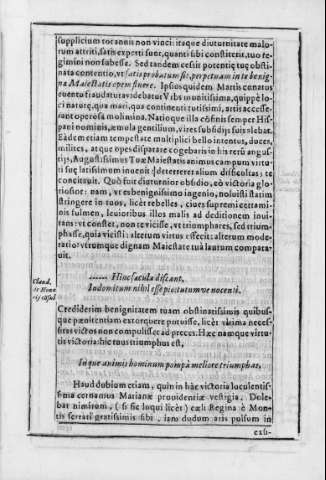 supplicium tot annis non vinci: itaque diuturnitate malo-
rum attriti, satis experti sunt, quanti sibi constiterit, tuo re-
gimini non subesse. Sed tandem cessit potentiæ tuæ obsti-
nata contentio, vt satis probatum sit, perpetuam in te benig-
na Maiestatis opem sinere. Ipsos quidem Martis conatus
euentus fraudatur videbat Vrbs munitissima, quippè lo-
ci natura, qua mari, qua continenti tutissimi, artis accesse-
rant operosa molimina. Natio que illa cõsinis semper His-
pani nominis, æmula gentilium, vires subsidijs suis iebat.
Eadem etiam tempestate multiplici bello intentus, duces,
milites, atque opes disparare cogebaris in his rerũ angus-
tijs, Augustissimus Tuæ Maiestatis animus campum virtu-
ti suæ latissimum inuenit deterreret alium difficultas; te
concitauit. Quò fuit diuturnior obsidio, eò victoria glo-
riosior: nam, vt es benignissimo ingenio, noluisti statim
astringere in tuos, licèt rebelles, ciues supremi certami-
nis fulmen, leuioribus illos malis ad deditionem inui-
tans: vt constet, non te vicisse, vt triumphares, sed trium-
phasse, quia vicisti: alterum virtus effecit: alterum mode-
ratio: vtrumque dignam Maiestate tuâ laurum compara-
uit.
...... Hinc sæcula discant,
Indomitum nihil esse pio, tutumve nocenti.
Claud.
Crediderim benignitatem tuam obstinatissimis quibus-
que pœnitentiam extorquere potuisse, licèt vltima neces-
sitas victos non compulisset ad preces. Hæc namque virtu-
tis victoria: hic tuus triumphus est,
Inque animis hominum pompâ meliore triumphat.
Haud dubium etiam, quin in hâc victoria luculentis-
sima cernamus Marianæ prouidentiæ vestigia. Dole-
bat nimirum, (si sic loqui licèt) cæli Regina è Mon-
tis serrati gratissimis sibi, iam dudum aris pulsum in
exsi-